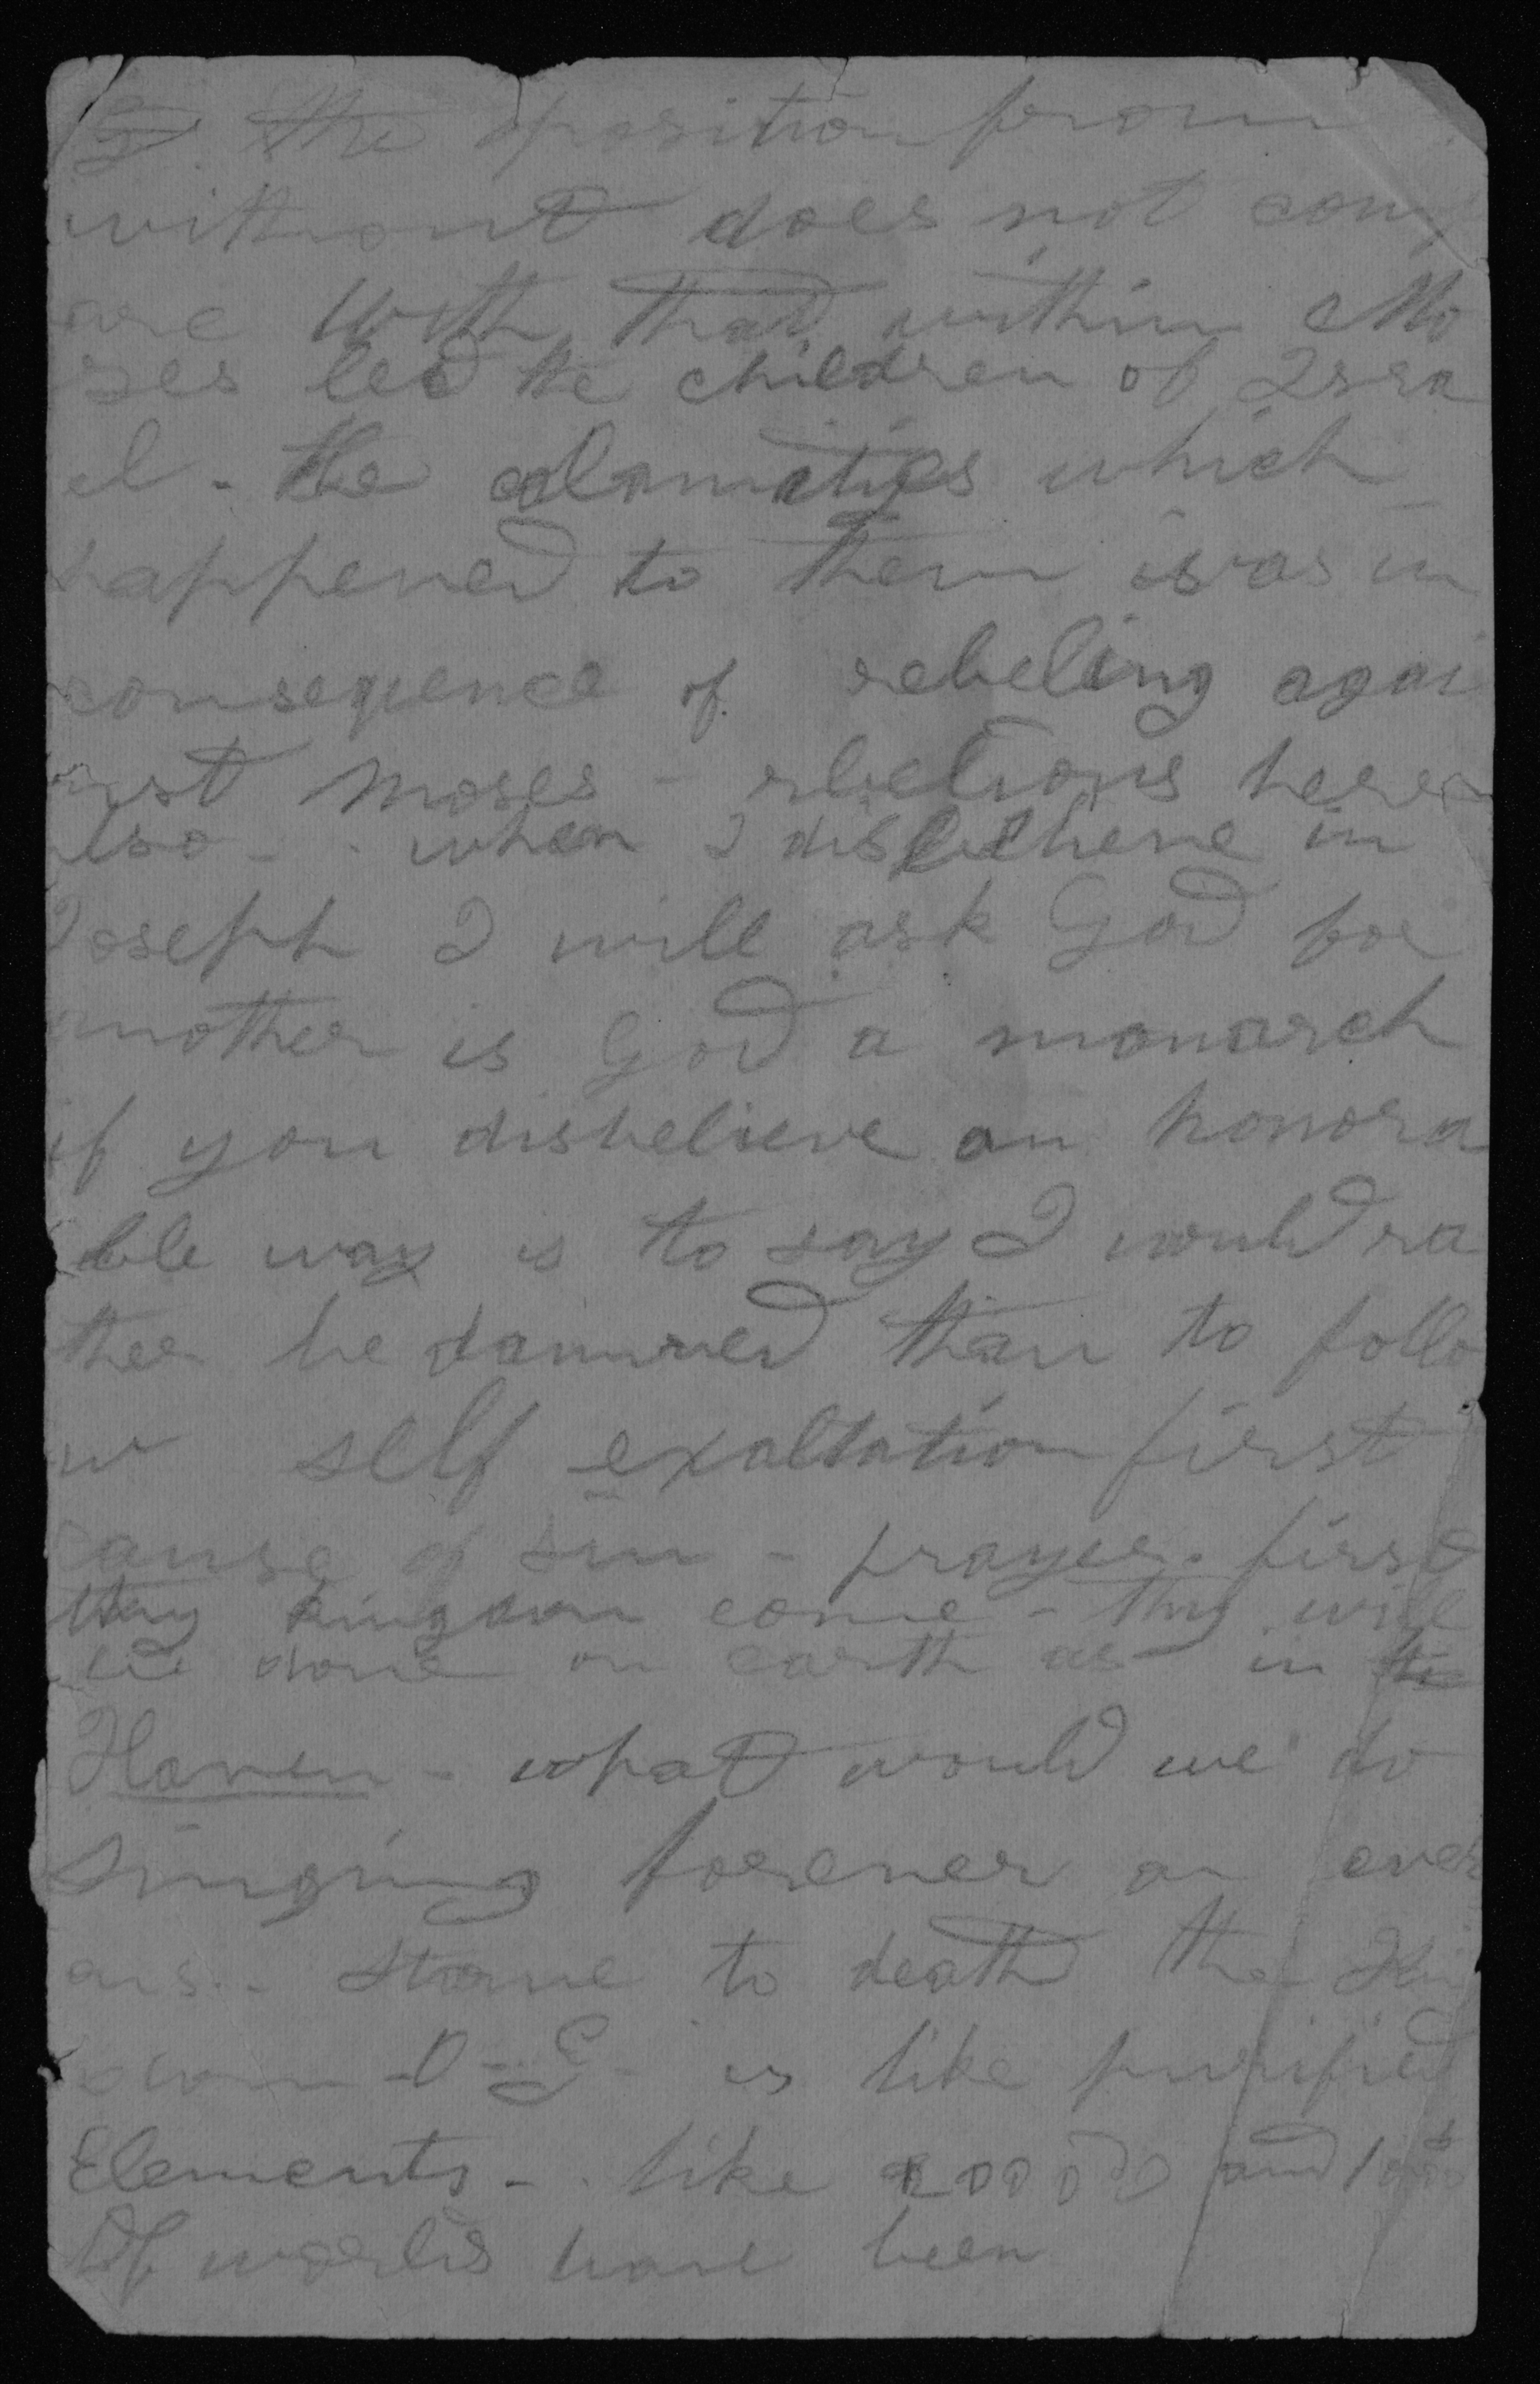 the oposition from
without does not comp
are with that within Mo
ses led the children of Isra
el - the calamities which
happened to them was in
consequence of rebeling agai
nst Moses - rbelions here
also - when I disbelieve in
Joseph I will ask God for
another is God a monarch
if you disbelieve an honora
ble way is to say I would ra
ther be damned than to follo
w self exaltation first
cause of sin - prayer first
thy kingdom come - thy will
be done on earth as in the
Haven - what would we do
singing forever an ever
ans - to death the Kin
O - G - is like purified
Elements - like and
Of worlds have been